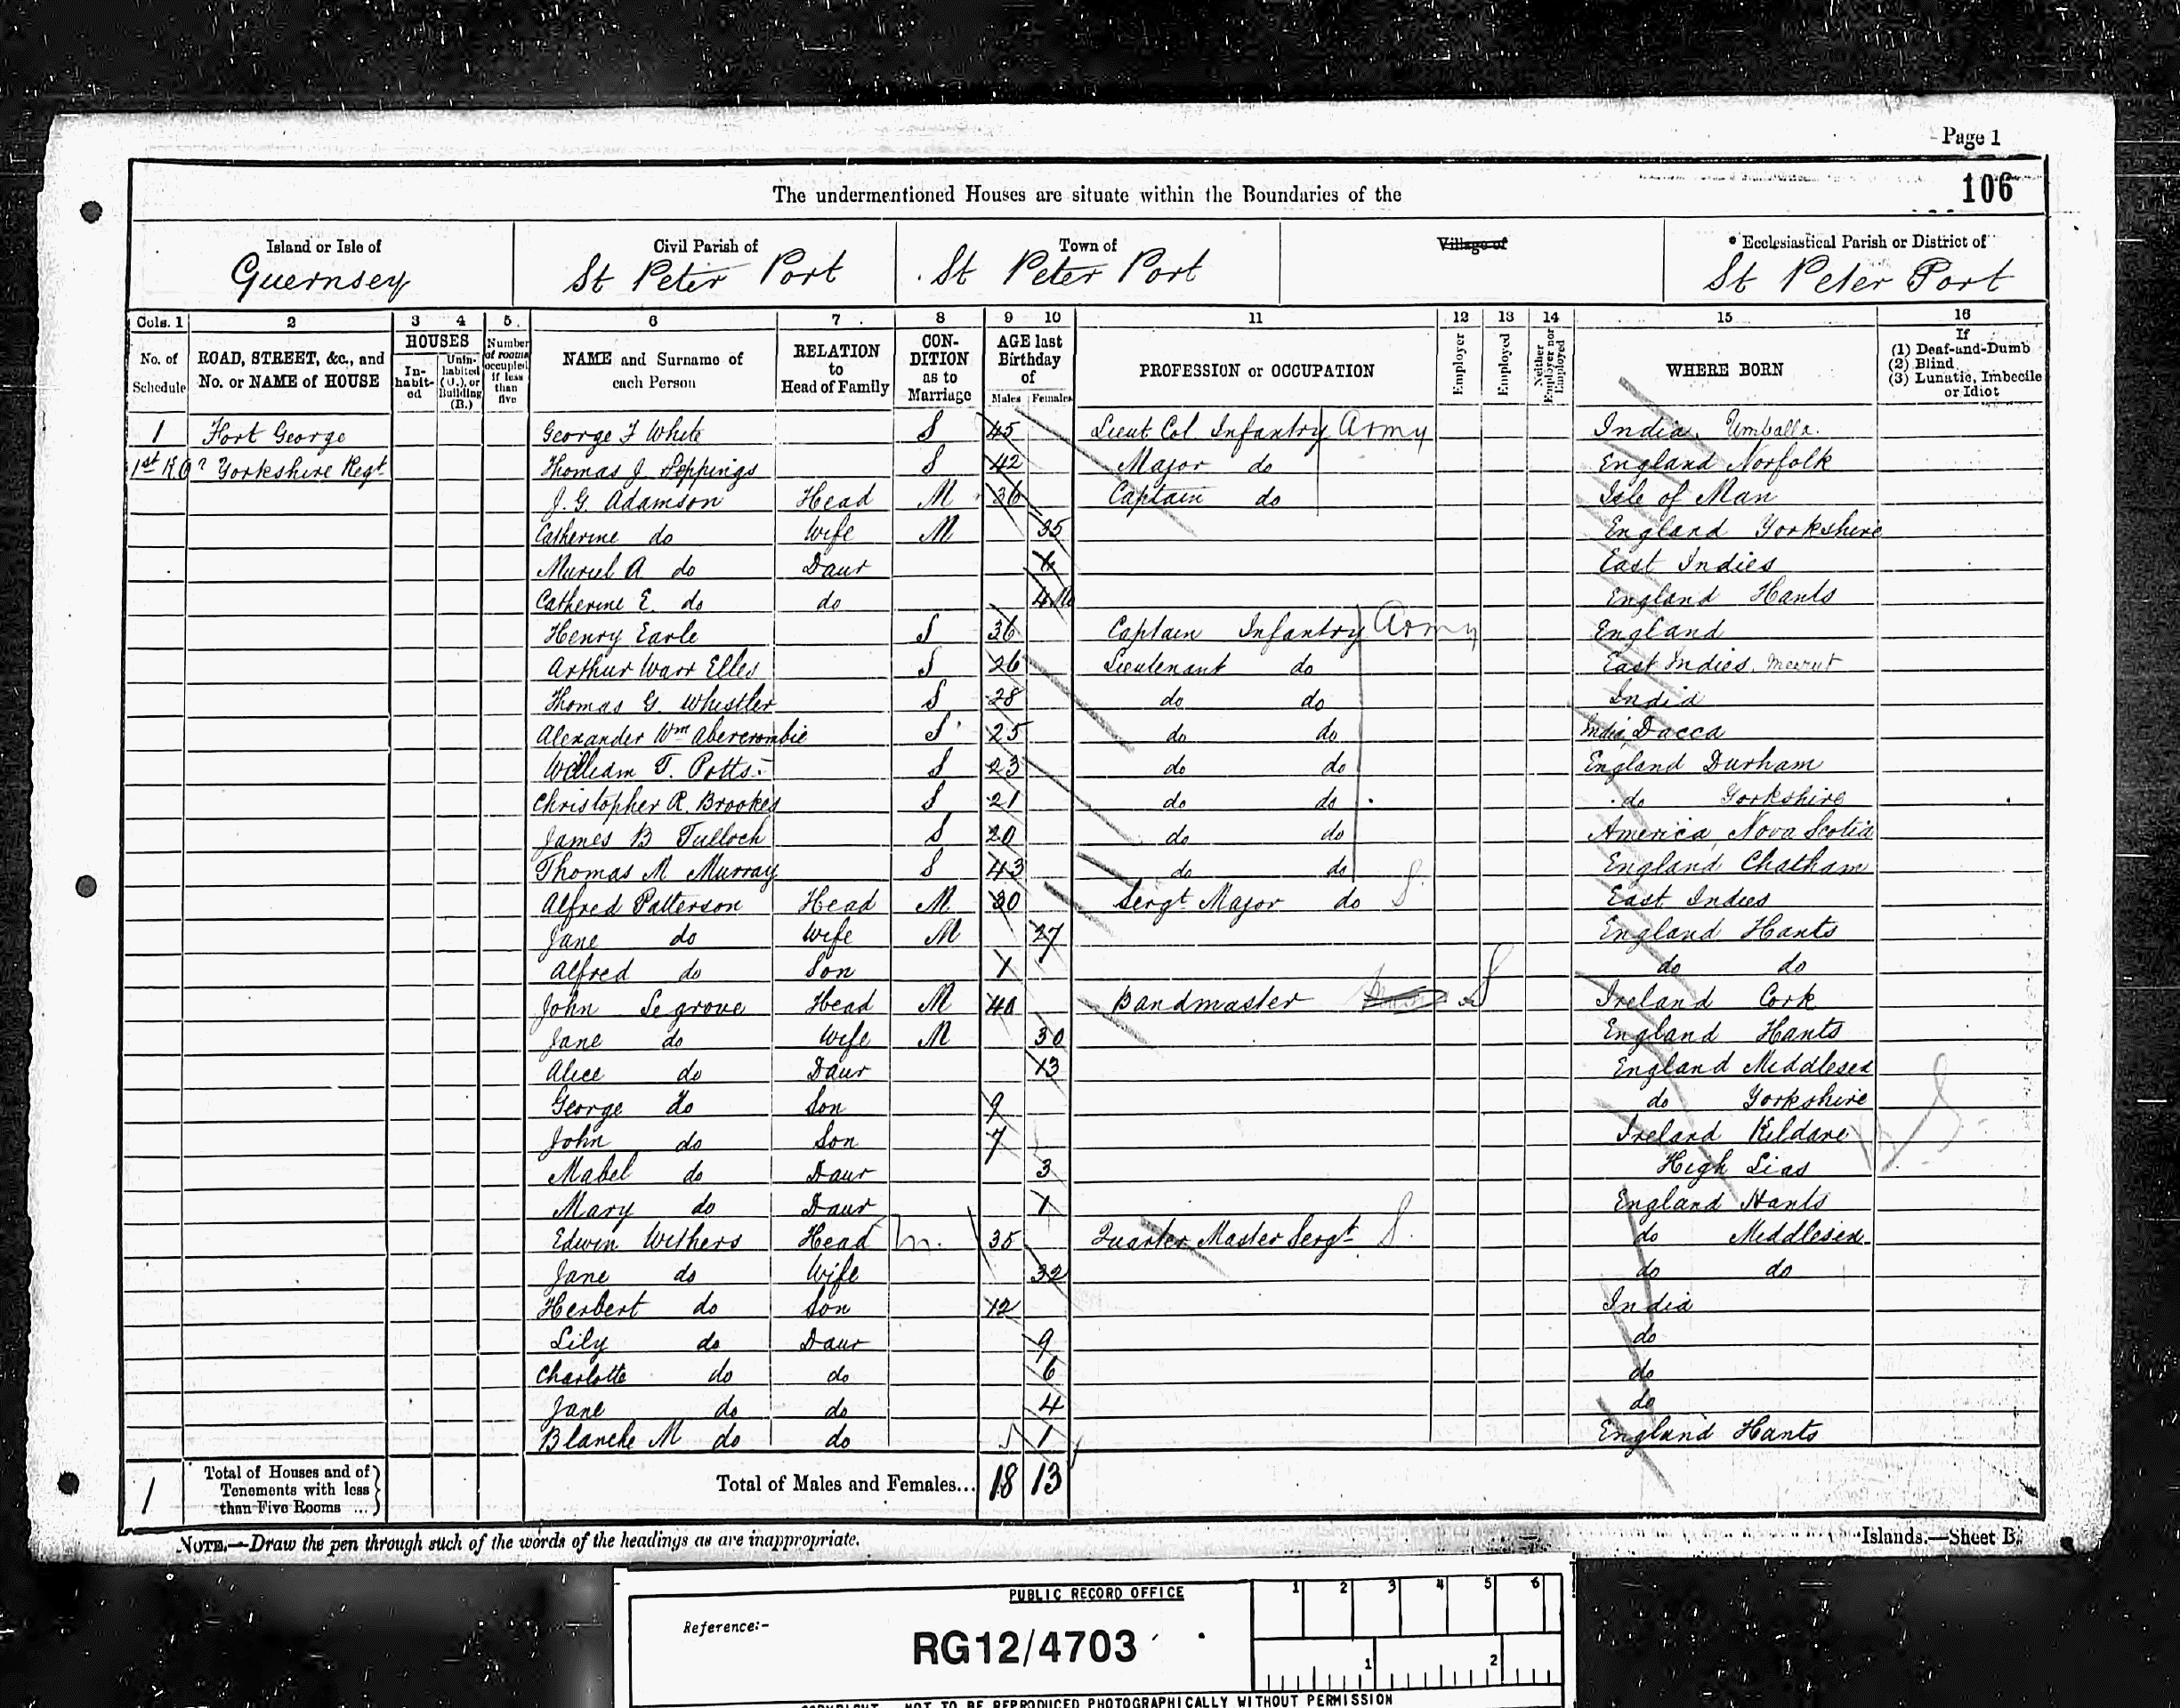 Page 1
The undermentioned Houses are situate within the Boundaries of the
106
Island or Isle of Civil Parish of Town of Village of * Ecclesiastical Parish or District of
Guernsey St Peter Port St Peter Port St Peter Port
Cols. 1 2 3 4 5 6 7 8 9 10 11 12 13 14 15 16
No. of Schedule ROAD, STREET, &c., and No. or NAME of HOUSE HOUSES Inhabited Uninhabited (U.), or Building (B.) Number of rooms occupied if less than five NAME and Surname of each Person RELATION to Head of Family CONDITION as to Marriage AGE last Birthday of Males Females PROFESSION or OCCUPATION Employer Employed Neither Employer nor Employed WHERE BORN If (1) Deaf-and-Dumb (2) Blind (3) Lunatic, Imbecile or Idiot
1 Fort George George F White S 45 Lieut Col. Infantry Army India. Umballa.
1st Yorkshire Regt Thomas J. Seppings S 42 Major do England Norfolk
J. G. Adamson Head M 36 Captain do Isle of Man
Catherine do Wife M 35 England Yorkshire
Muriel A do Daur 6 East Indies
Catherine E. do do 4 England Hants
Henry Earle S 36 Captain Infantry Army England
Arthur Warr Elles S 26 Lieutenant do East Indies. Meerut
Thomas G. Whistler S 28 do do India
Alexander Wm Abercrombie S 25 do do India Dacca
William T. Potts S 23 do do England Durham
Christopher R. Brookes S 21 do do do Yorkshire
James B Tulloch S 20 do do America, Nova Scotia
Thomas M Murray S 43 do do England Chatham
Alfred Patterson Head M 30 Sergt Major do S. East Indies
Jane do Wife M 27 England Hants
Alfred do Son 1 do do
John Segrove Head M 40 Bandmaster Ireland Cork
Jane do Wife M 30 England Hants
Alice do Daur 13 England Middlesex
George do Son 9 do Yorkshire
John do Son 7 Ireland Kildare
Mabel do Daur 3 High Seas
Mary do Daur 1 England Hants
Edwin Withers Head m. 35 Quarter Master Sergt S. do Middlesex
Jane do Wife 32 do do
Herbert do Son 12 India
Lily do Daur 9 do
Charlotte do do 6 do
Jane do do 4 do
Blanche M do do 1 England Hants
1 Total of Houses and of Tenements with less than Five Rooms ... Total of Males and Females... 18 13
NOTE.—Draw the pen through such of the words of the headings as are inappropriate.
Islands.—Sheet B.
PUBLIC RECORD OFFICE
1 2 3 4 5 6
Reference:-
RG12/4703
1 2
COPYRIGHT - NOT TO BE REPRODUCED PHOTOGRAPHICALLY WITHOUT PERMISSION